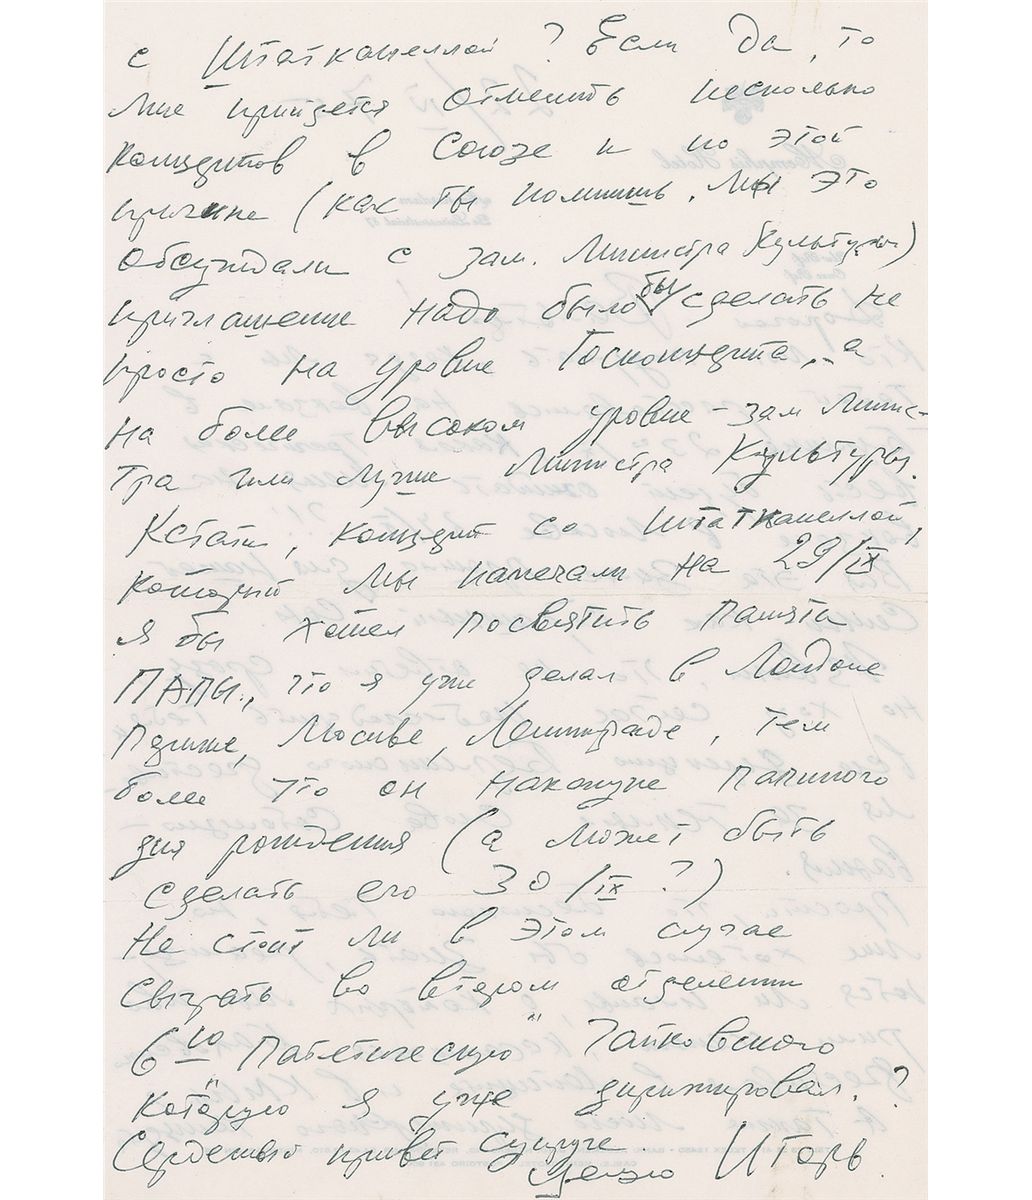 с Штатскапеллой? Если да, то
мне придется отменить несколько
концертов в Союзе и по этой
причине (как ты помнишь, мы это
обсуждали с зам. Министра Культуры)
приглашение надо было бы сделать не
просто на уровне Госконцерта, а
на более высоком уровне - зам Минис-
тра или лучше Министра Культуры.
Кстати, концерт со Штаткапеллой,
который мы намечали на 29/IX
я бы хотел посвятить памяти
ПАПЫ, что я уже делал в Лондоне
Париже, Москве, Ленинграде, тем
более что он накануне папиного
дня рождения (а может быть
сделать его 30/IX?)
Не стоит ли в этом случае
сыграть во втором отделении
6ую "Патетическую" Чайковского
которую я уже дирижировал?
Сердечный привет супруге
Игорь.